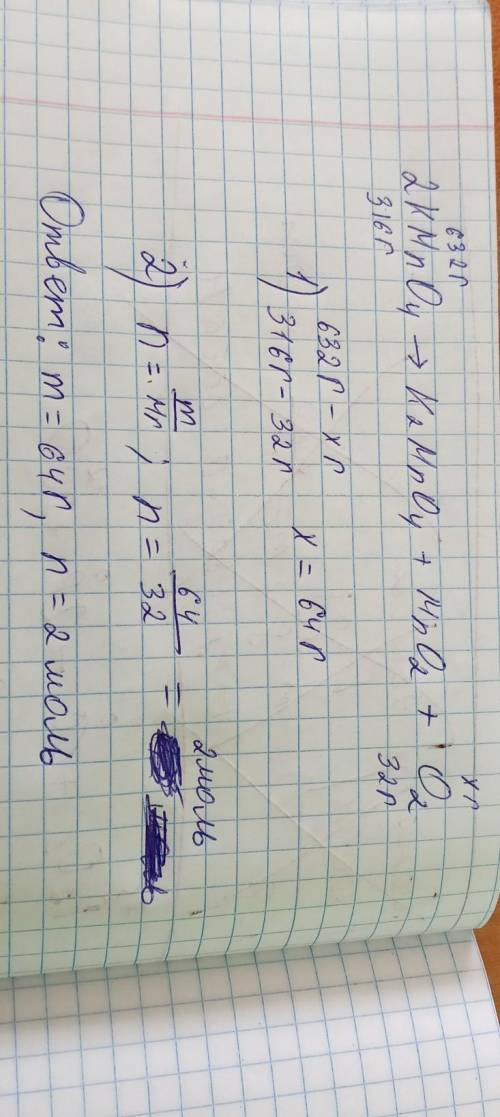 632г хг
2KMnO₄ → K₂MnO₄ + MnO₂ + O₂
316г 32г
632г – хг
1) 316г – 32г x = 64г
2) n = m/Mr ; n = 64/32 = 2 моль
Ответ: m = 64г, n = 2 моль